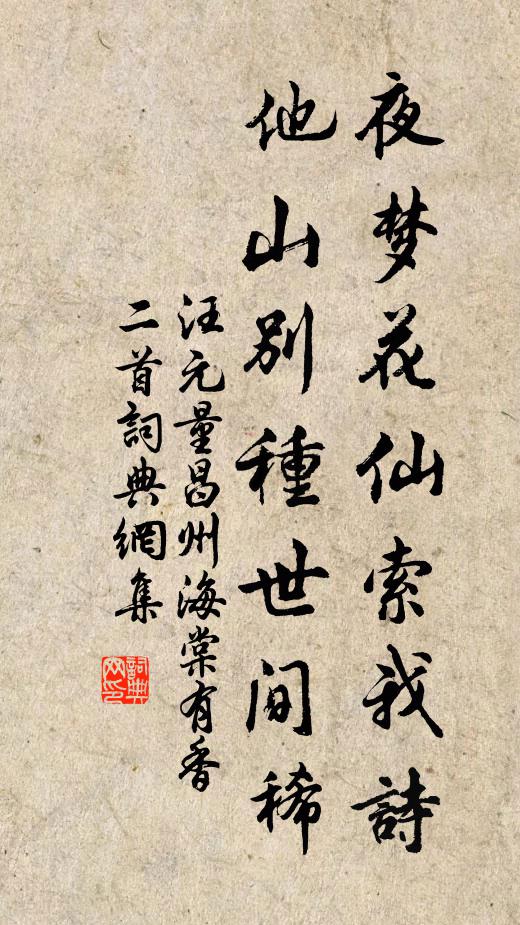 夜梦花仙索我詩
他山別種世间稀
汪元量昌州海棠有香
二首詞典網集
詞典
网印